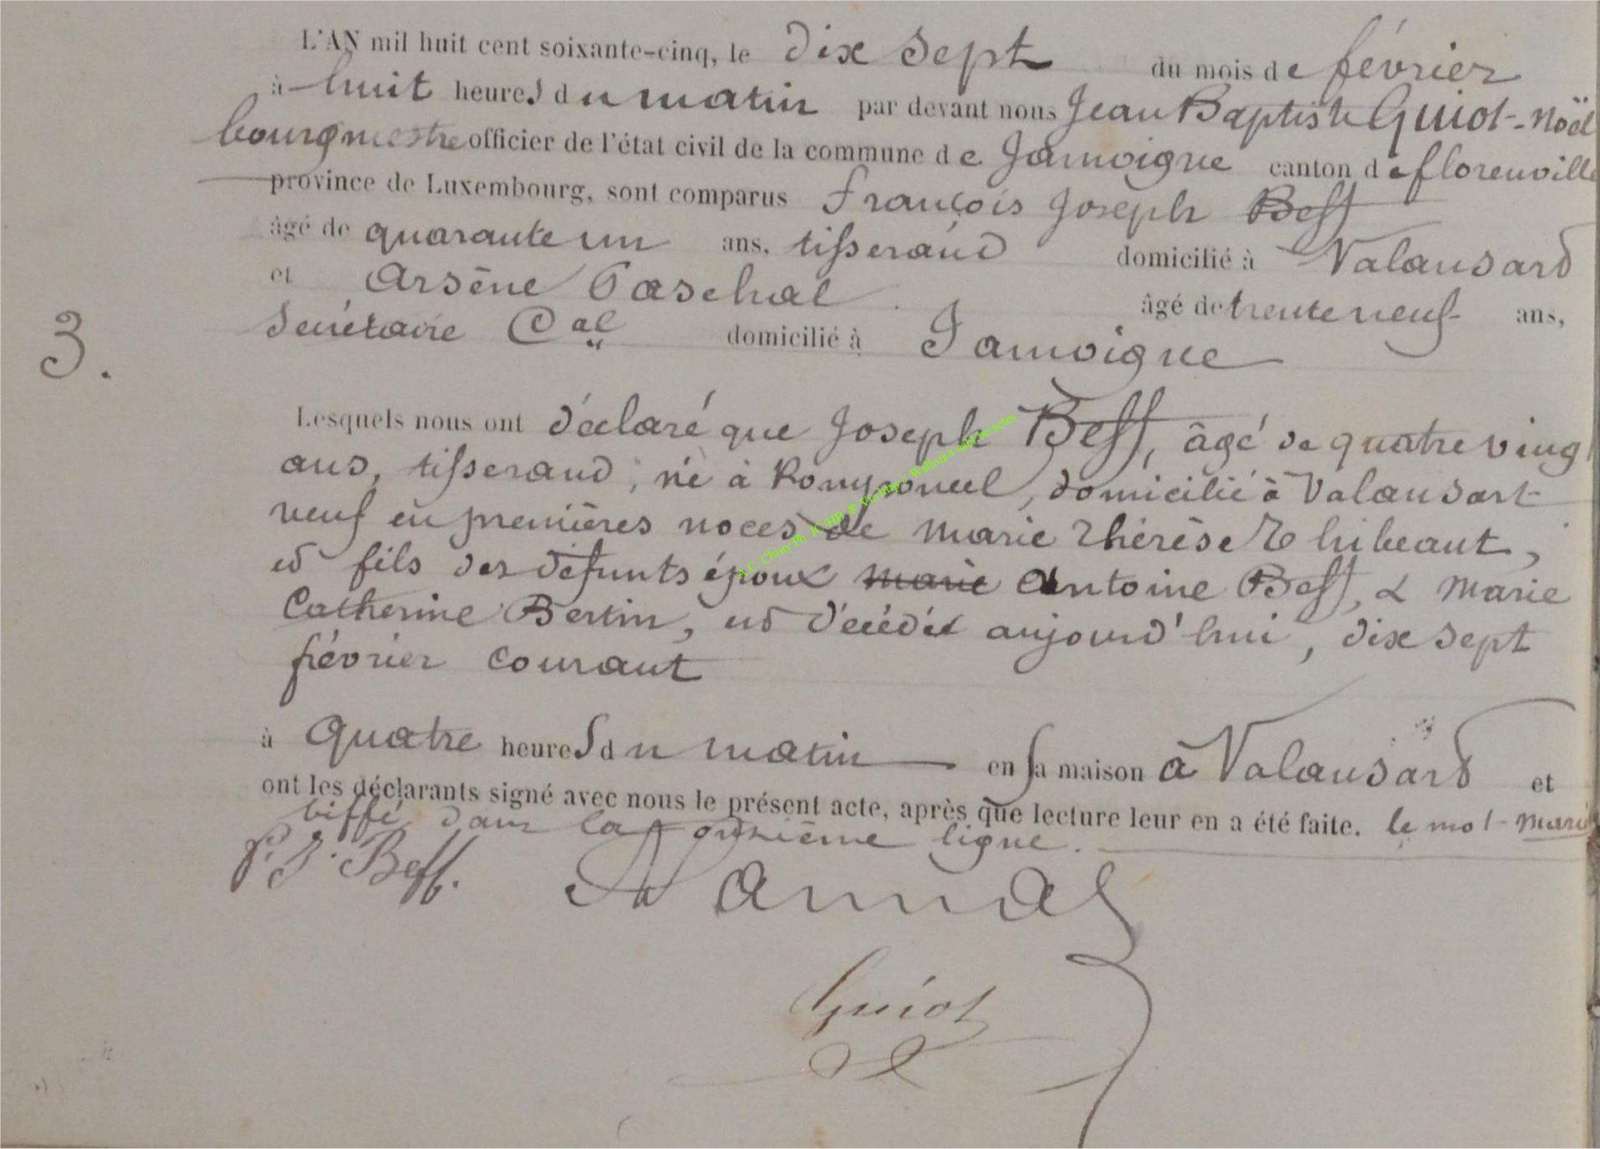 L'AN mil huit cent soixante-cinq, le dix sept du mois de février
à huit heures du matin par devant nous Jean Baptiste Guiot-Noël
bourgmestre officier de l'état civil de la commune de Jamoigne canton de florenville
province de Luxembourg, sont comparus François Joseph Beff
âgé de quarante un ans, tisserand domicilié à Valansard
et Arsène Paschal âgé de trente neuf ans,
Secrétaire Cal domicilié à Jamoigne
3.
Lesquels nous ont déclaré que Joseph Beff, âgé de quatre ving
ans, tisserand, né à domicilié à Valansart
veuf en premières noces de Marie Thérèse Thibeaut,
et fils des défunts époux marie Antoine Beff, & Marie
Catherine Bertin, est décédé aujourd'hui, dix sept
février courant
à quatre heures du matin en sa maison à Valansard et
ont les déclarants signé avec nous le présent acte, après que lecture leur en a été faite. le mot marie
biffé dans la onzième ligne.
f. J. Beff.
Guiot